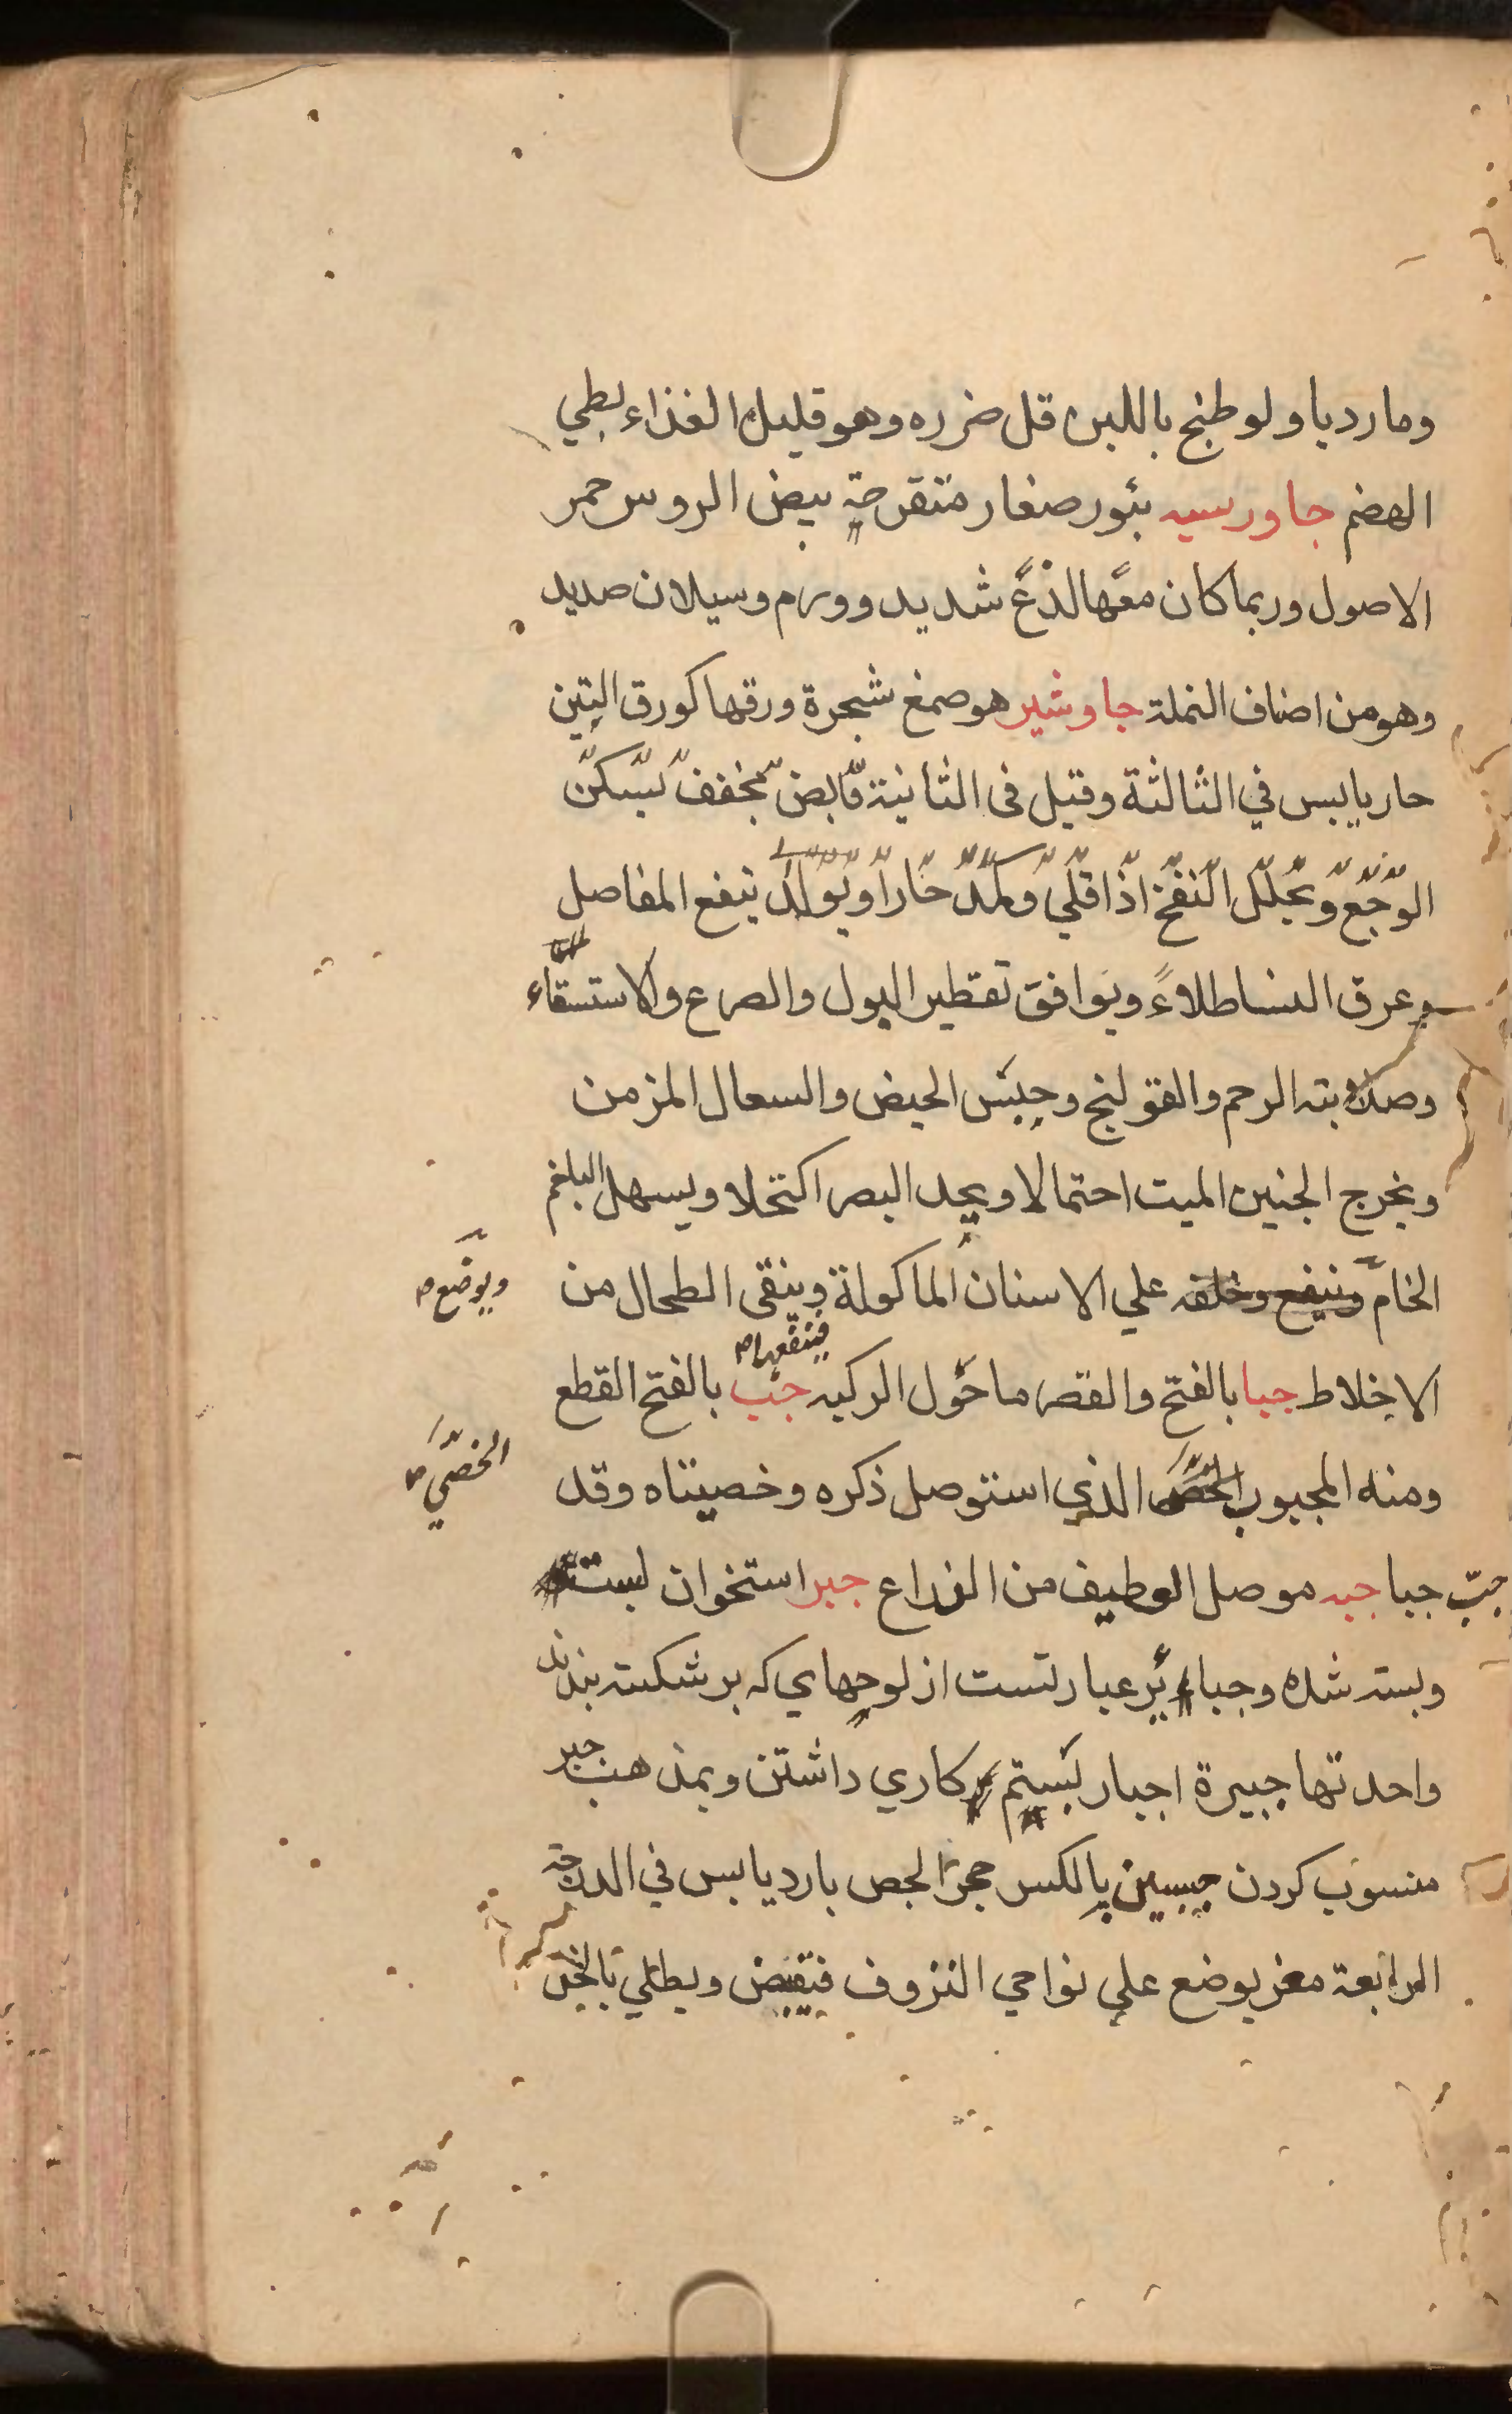 وما رديا ولو طبخ باللبن قل ضرره وهو قليل الغذاء بطي
الهضم جاورسيه بثور صغار متقرحة بيض الروس حمر
الاصول وربما كان معها لذع شديد وورم وسيلان صديد
وهو من اصناف النملة جاوشير هو صمغ شجرة ورقها كورق التين
حار يابس في الثالثة وقيل فى الثانية قابض مجفف يسكن
الوجع ويحلل النفخ اذا قلي وكمد حارا ويولد ينفع المفاصل
وعرق النسا طلاءً ويوافق تقطير البول والصرع والاستسقاء
وصلابته الرحم والقولنج وحبس الحيض والسعال المزمن
ويخرج الجنين الميت احتمالا ويحد البصر اكتحلا ويسهل البلغم
الخام علي الاسنان الماكولة وينقى الطحال من
ويوضع
فينفعها
الاخلاط جبا بالفتح والقصر ما حول الركيه جب بالفتح القطع
ومنه المجبوب الذي استوصل ذكره وخصيتاه وقد
الخصي
جبّ جبا جبه موصل الوطيف من الذراع جبر استخوان بست
وبسته شده وجباير عبارتست از لوحهاي كه بر شكسته بندند
واحدتها جبيرة اجبار بستم كاري داشتن وبمذهب جبر
منسوب كردن جبسين بالكسر حجر الجص بارد يابس في الدرجة
الرابعة مغر يوضع علي نواحي النزوف فيقبض ويطلي بالخل